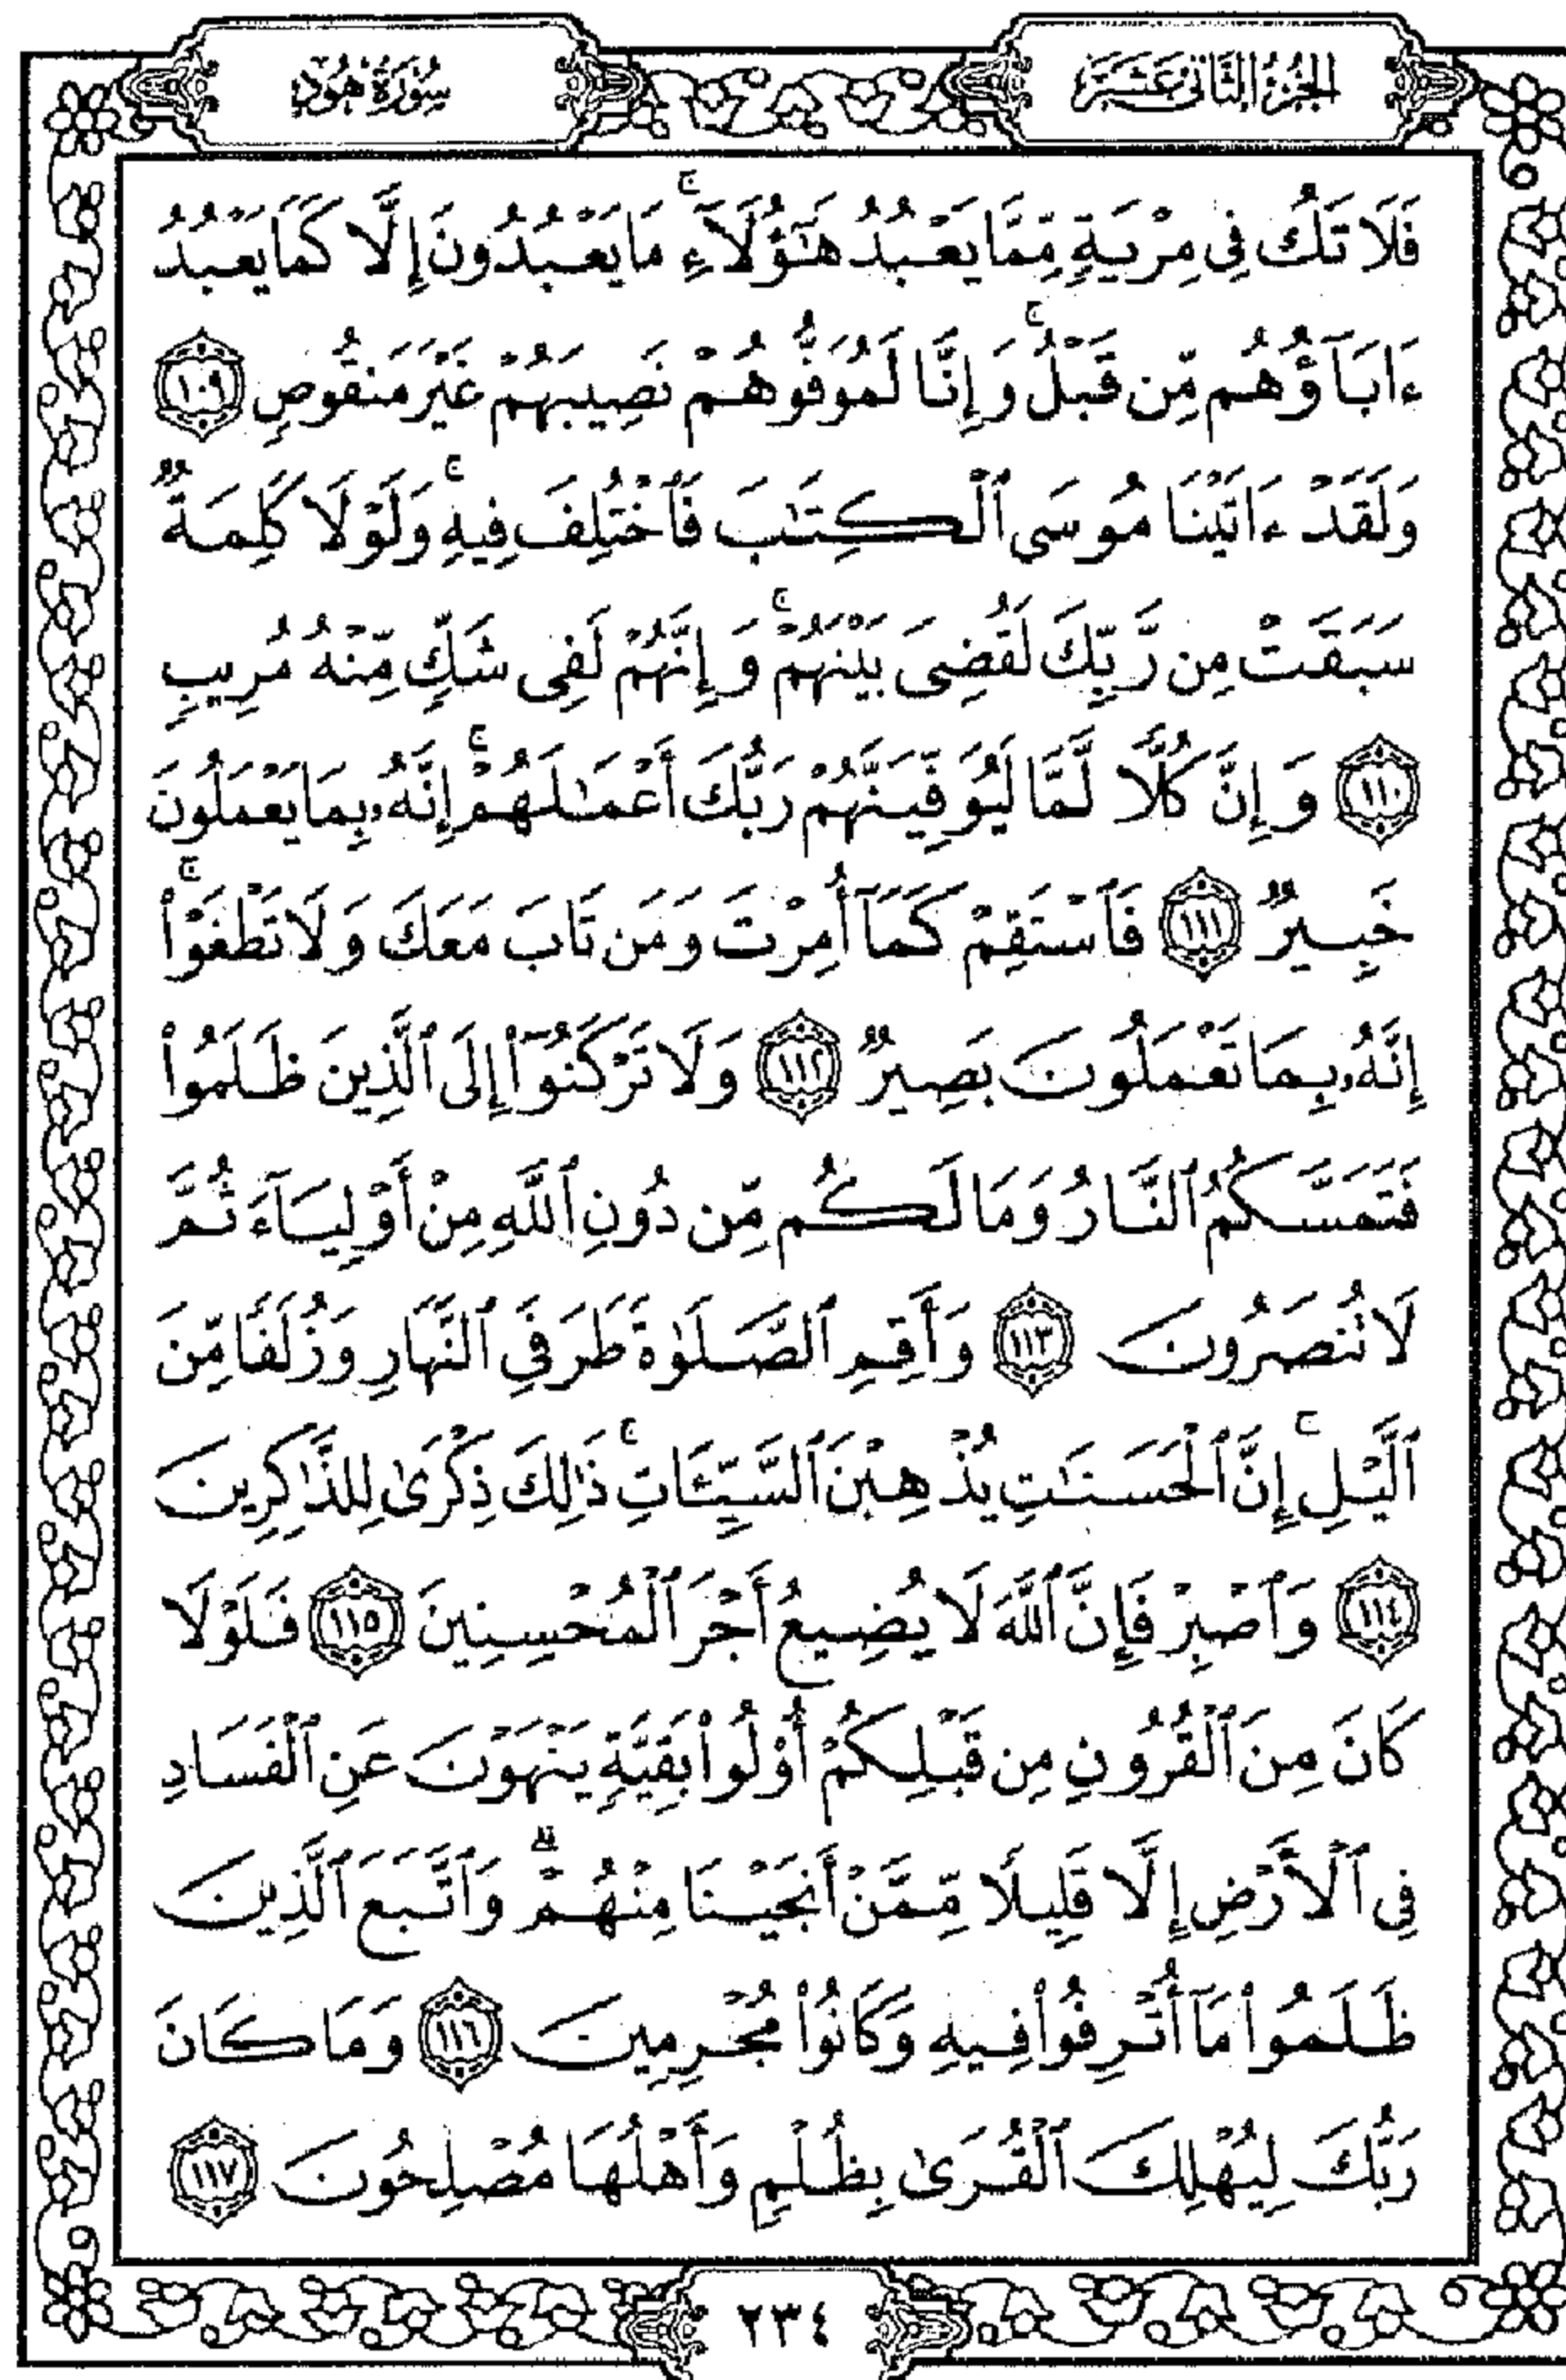 الجزء الثاني عشر
سورة هود
فَلَا تَكُ فِى مِرْيَةٍ مِّمَّا يَعْبُدُ هَٰٓؤُلَآءِ ۚ مَا يَعْبُدُونَ إِلَّا كَمَا يَعْبُدُ
ءَابَآؤُهُم مِّن قَبْلُ ۚ وَإِنَّا لَمُوَفُّوهُمْ نَصِيبَهُمْ غَيْرَ مَنقُوصٍ ١٠٩
وَلَقَدْ ءَاتَيْنَا مُوسَى ٱلْكِتَٰبَ فَٱخْتُلِفَ فِيهِ ۚ وَلَوْلَا كَلِمَةٌ
سَبَقَتْ مِن رَّبِّكَ لَقُضِىَ بَيْنَهُمْ ۚ وَإِنَّهُمْ لَفِى شَكٍّ مِّنْهُ مُرِيبٍ
١١٠ وَإِنَّ كُلًّا لَّمَّا لَيُوَفِّيَنَّهُمْ رَبُّكَ أَعْمَٰلَهُمْ ۚ إِنَّهُۥ بِمَا يَعْمَلُونَ
خَبِيرٌ ١١١ فَٱسْتَقِمْ كَمَآ أُمِرْتَ وَمَن تَابَ مَعَكَ وَلَا تَطْغَوْا۟ ۚ
إِنَّهُۥ بِمَا تَعْمَلُونَ بَصِيرٌ ١١٢ وَلَا تَرْكَنُوٓا۟ إِلَى ٱلَّذِينَ ظَلَمُوا۟
فَتَمَسَّكُمُ ٱلنَّارُ وَمَا لَكُم مِّن دُونِ ٱللَّهِ مِنْ أَوْلِيَآءَ ثُمَّ
لَا تُنصَرُونَ ١١٣ وَأَقِمِ ٱلصَّلَوٰةَ طَرَفَىِ ٱلنَّهَارِ وَزُلَفًا مِّنَ
ٱلَّيْلِ ۚ إِنَّ ٱلْحَسَنَٰتِ يُذْهِبْنَ ٱلسَّيِّـَٔاتِ ۚ ذَٰلِكَ ذِكْرَىٰ لِلذَّٰكِرِينَ
١١٤ وَٱصْبِرْ فَإِنَّ ٱللَّهَ لَا يُضِيعُ أَجْرَ ٱلْمُحْسِنِينَ ١١٥ فَلَوْلَا
كَانَ مِنَ ٱلْقُرُونِ مِن قَبْلِكُمْ أُو۟لُوا۟ بَقِيَّةٍ يَنْهَوْنَ عَنِ ٱلْفَسَادِ
فِى ٱلْأَرْضِ إِلَّا قَلِيلًا مِّمَّنْ أَنجَيْنَا مِنْهُمْ ۗ وَٱتَّبَعَ ٱلَّذِينَ
ظَلَمُوا۟ مَآ أُتْرِفُوا۟ فِيهِ وَكَانُوا۟ مُجْرِمِينَ ١١٦ وَمَا كَانَ
رَبُّكَ لِيُهْلِكَ ٱلْقُرَىٰ بِظُلْمٍ وَأَهْلُهَا مُصْلِحُونَ ١١٧
٢٣٤